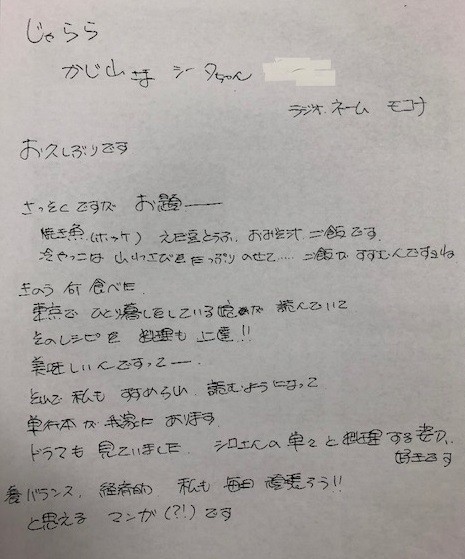 じゃらら
かじ山さま シータちゃん
ラジオネーム モコナ
お久しぶりです
さっそくですが お題――
焼き魚(ホッケ) えだ豆とうふ、おみそ汁 ご飯です。
冷やっこは 山わさびをたっぷりのせて…… ご飯がすすむんですよね
きのう何食べた
東京でひとり暮しをしている娘が 読んでいて
そのレシピで 料理も上達!!
美味しいんですって―。
それで私も すすめられ 読むようになって
単行本が我家に あります。
ドラマも見ていました シロさんの単々と料理する姿が、
好きです
養バランス、経済的 私も毎日 頑張ろう!!
と思える マンガ(?!)です